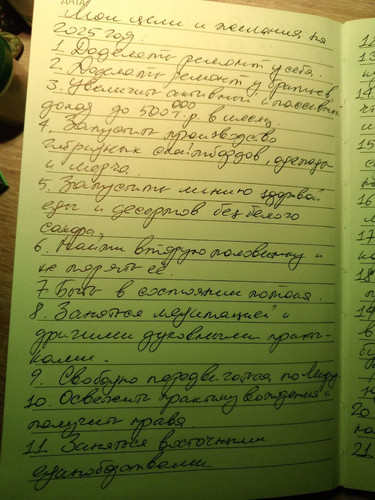 ДАТА
Мои цели и желания на
2025 год:
1. Доделать ремонт у себя.
2. Доделать ремонт у братьев
3. Увеличить активный и пассивный
доход до 500 000 р. в месяц.
4. Запустить производство
гибридных скаллбордов, одежды
и мерча.
5. Запустить линию здоровой
еды и десертов без белого
сахара,
6. Найти вторую половинку и
не терять её.
7 Быть в состоянии потока.
8. Заняться медитацией и
другими духовными практи-
ками.
9. Свободно передвигаться по миру.
10. Освежить практику вождения и
получить права
11. Заняться восточными
единоборствами
12
13
14
15
16
17
18
19
20
21.